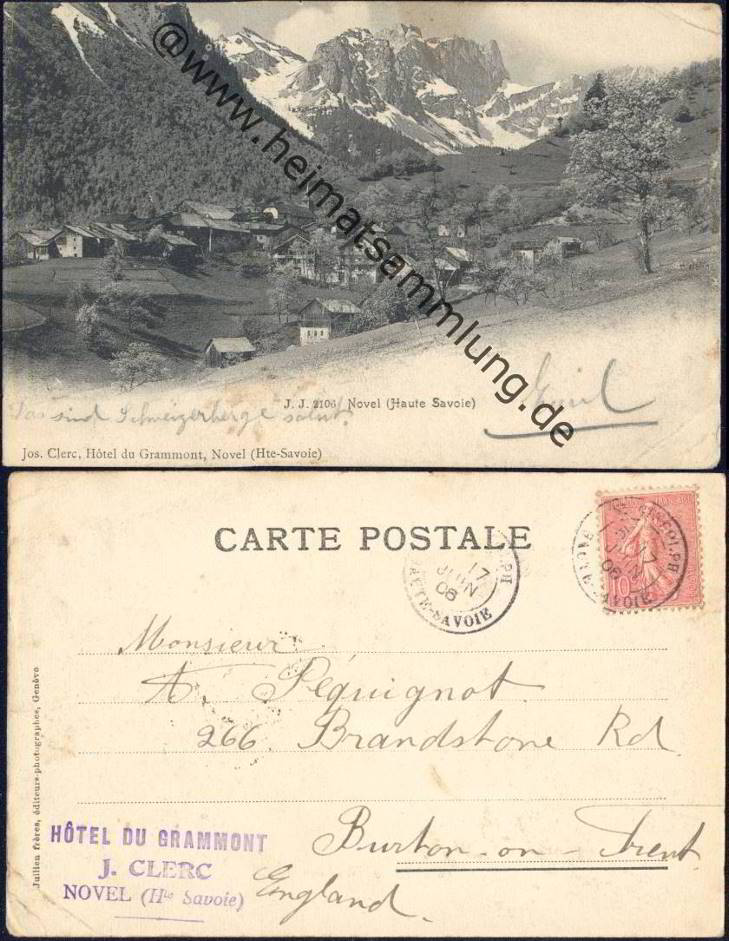 @www.heimatsammlung.de
J. J. 2106 Novel (Haute Savoie)
Das sind Schweizerberge salut.
Emil
Jos. Clerc, Hôtel du Grammont, Novel (Hte-Savoie)
CARTE POSTALE
17
JUIN
06
HTE-SAVOIE
ST GINGOLPH
17
JUIN
06
HTE-SAVOIE
10
Monsieur
A. Péquignot
266 Brandstone Rd.
Burton-on-Trent.
England.
HÔTEL DU GRAMMONT
J. CLERC
NOVEL (Hte Savoie)
Jullien frères, éditeurs-photographes, Genève